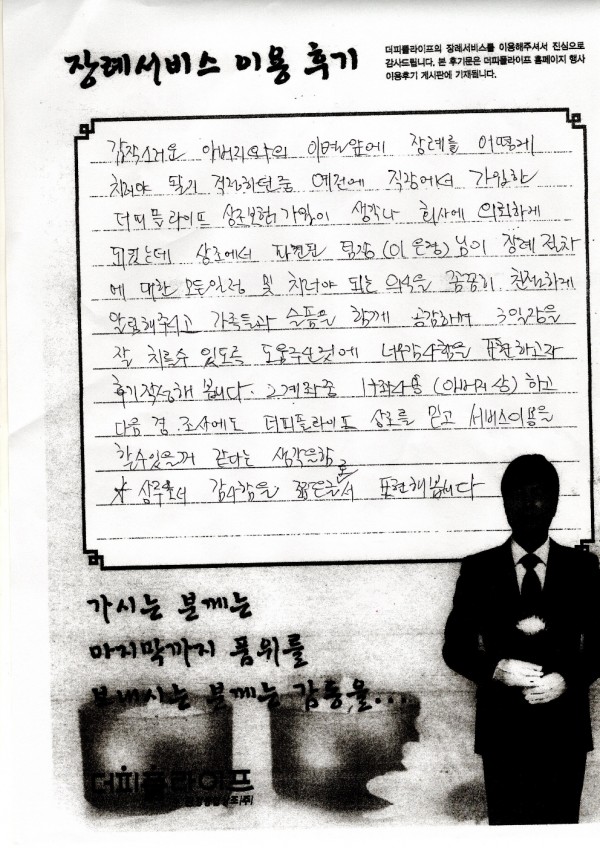 장례서비스 이용 후기
더피플라이프의 장례서비스를 이용해주셔서 진심으로
감사드립니다. 본 후기문은 더피플라이프 홈페이지 행사
이용후기 게시판에 기재됩니다.
갑작스러운 아버지와의 이별앞에 장례를 어떻게
치러야 할지 걱정하던중 예전에 직장에서 가입한
더피플라이프 상조보험가입이 생각나 회사에 의뢰하게
되었는데 상조에서 파견된 팀장(이은경)님이 장례절차
에 대한 모든일정 및 치러야 되는 의식을 꼼꼼히 친절하게
알려해주시고 가족들과 슬픔을 함께 공감하며 3일장을
잘 치를수 있도록 도움주신것에 너무감사함을 표현하고자
후기작성해 봅니다. 2계좌중 1계좌사용 (아버지상) 하고
다음 경.조사에도 더피플라이프 상조를 믿고 서비스이용을
할수있을거 같다는 생각을함
상주로서 감사함을 짧은글로서 표현해봅니다
가시는 분께는
마지막까지 품위를
보내시는 분께는 감동을...
더피플라이프